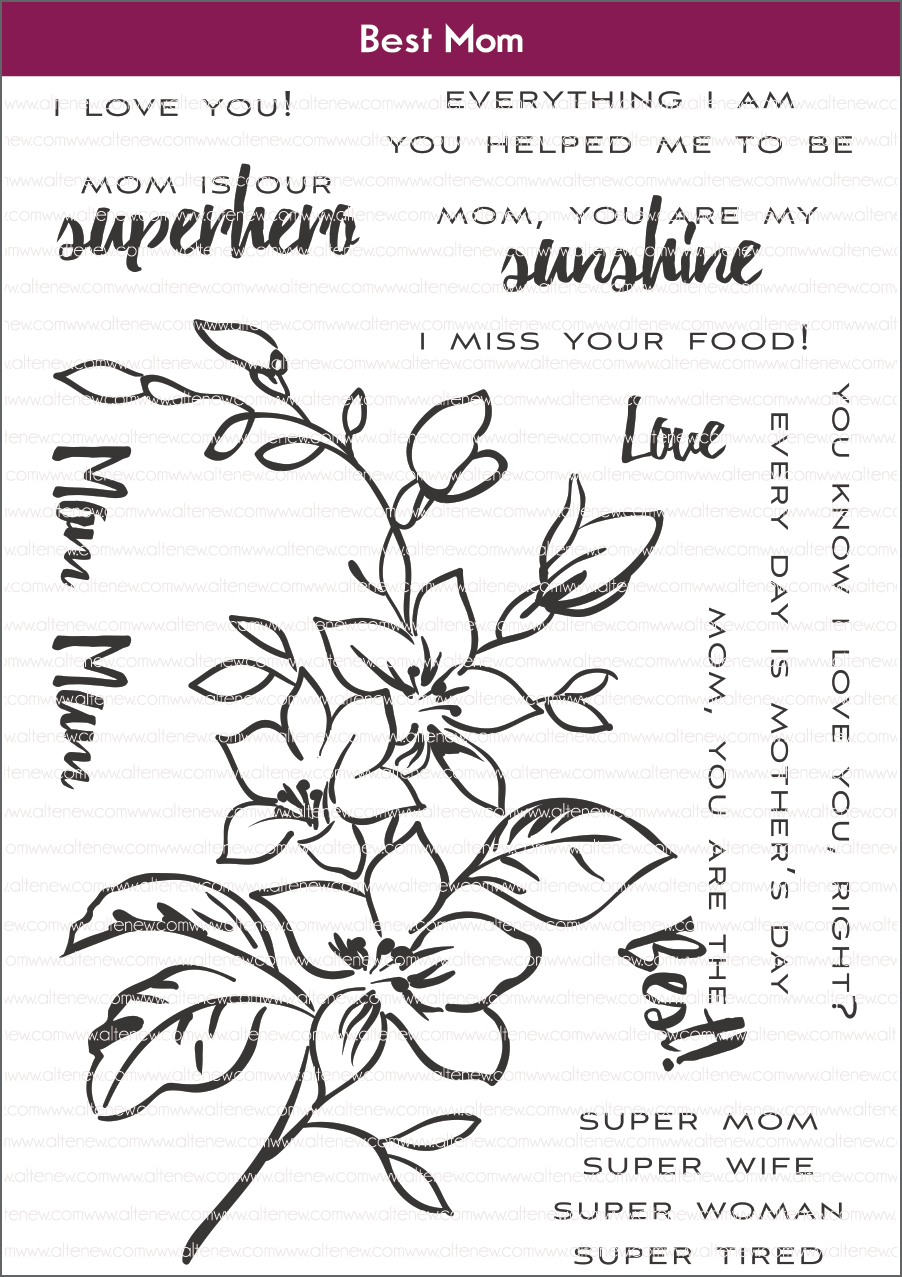 Best Mom
I LOVE YOU!
EVERYTHING I AM
YOU HELPED ME TO BE
MOM IS OUR
superhero
MOM, YOU ARE MY
sunshine
I MISS YOUR FOOD!
Love
YOU KNOW I LOVE YOU, RIGHT?
EVERY DAY IS MOTHER'S DAY
MOM, YOU ARE THE
Best!
Mom
Mum
SUPER MOM
SUPER WIFE
SUPER WOMAN
SUPER TIRED
www.altenew.com